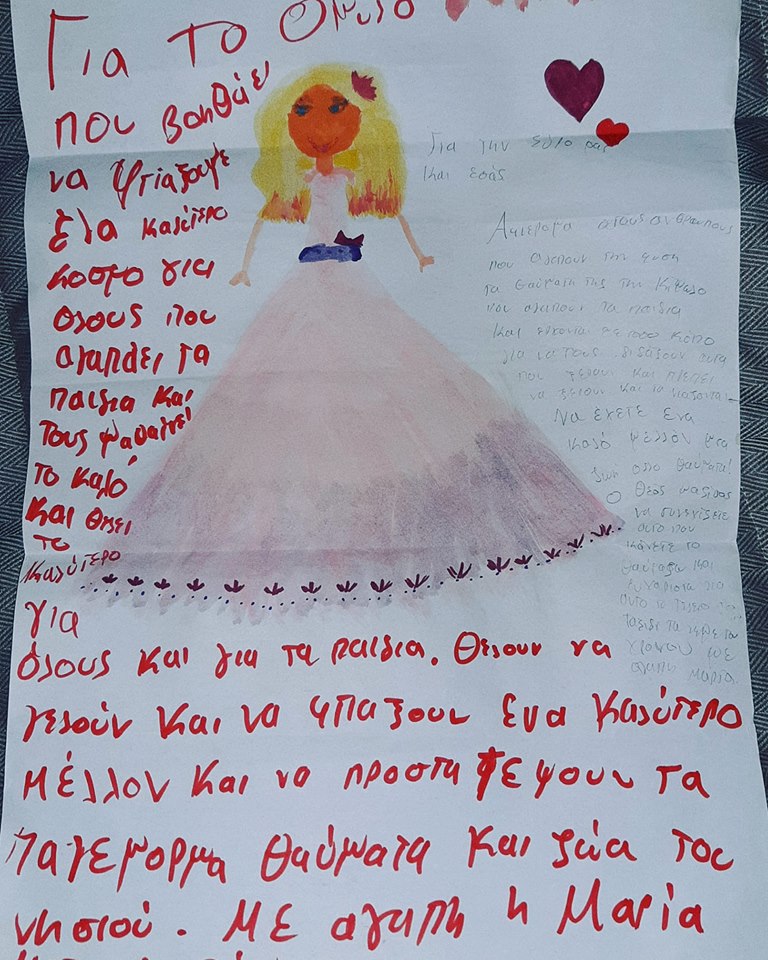 Για το Ομιλο
που βοηθάει
να φτιάξουμε
ένα καλύτερο
κοσμο για
ολους που
αγαπάει τα
παιδια και
τους μαθαίνει
το καλό
και θέλει
το
καλύτερο
για
όλους και για τα παιδια. Θελουν να
γελούν και να φτιαξουν ενα καλύτερο
μέλλον και να προστατεψουν τα
παγεμορμα θαύματα και ζώα του
νησιού. Με αγαπη η Μαρία
Για την
και εσάς
Αφιερομα στους ανθρωπους
που αγαπουν την φυση
τα θαυματα της την
που αγαπουν τα παιδια
και ερχονται με τοσο κοπο
για να τους διδαξουν αυτα
που ξερουν και πρεπει
να ξερουν και τα
Να εχετε ενα
καλο μελλον
ζωη ολο θαυματα!
Ο Θεος μαζι σας
να συνεχισετε
αυτο που
κανετε το
και
για
αυτο το
ταξιδι τα
χρονου με
αγαπη Μαρια.